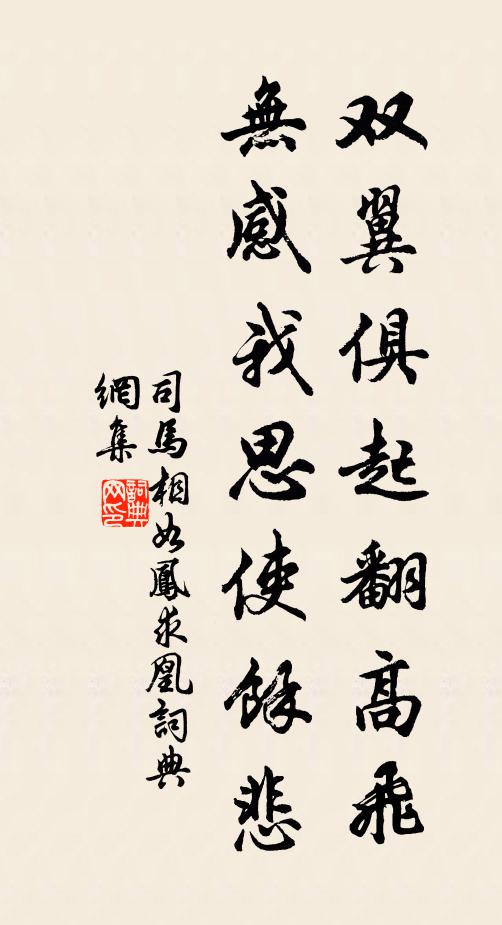 双翼俱起翻高飛
無感我思使餘悲
司馬相如鳳求凰詞典
網集
詞典
网印